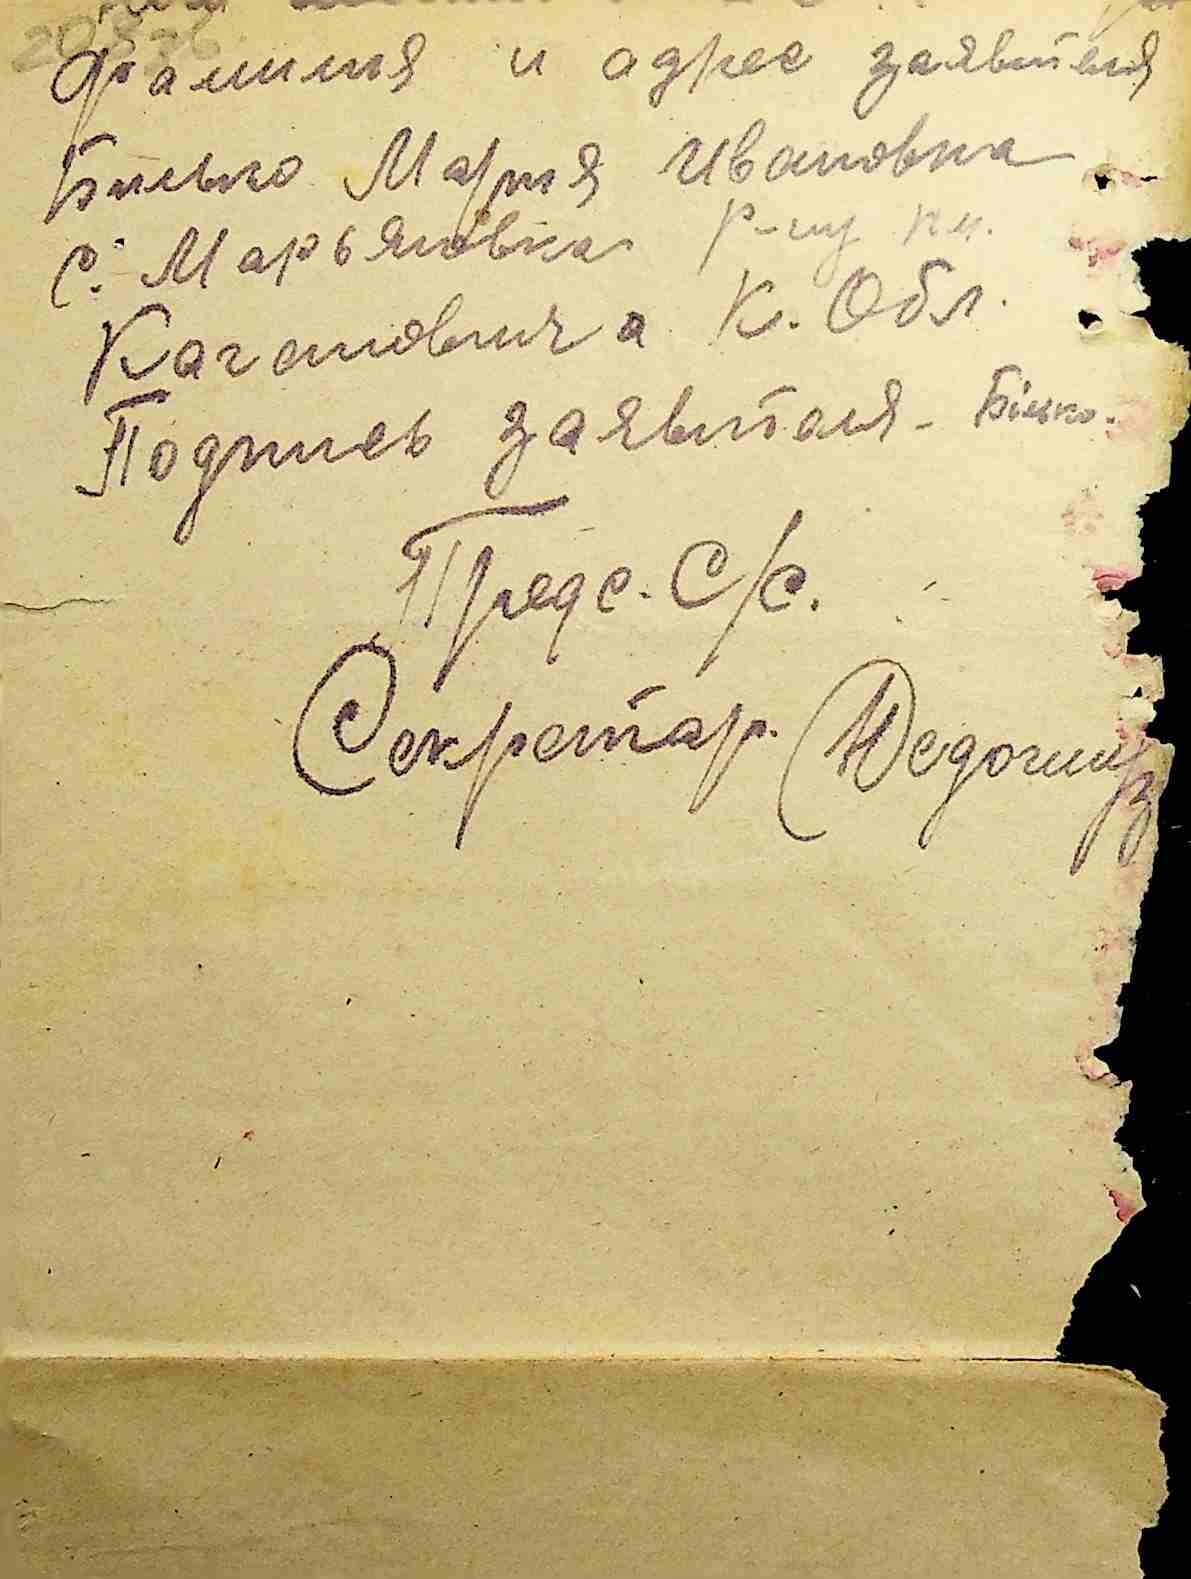 фамилия и адрес заявителя
Билько Мария Ивановка
с. Марьяновка р-ну им.
Кагановича К. Обл.
Подпись заявителя - Білько.
Предс. С/с.
Секретар.